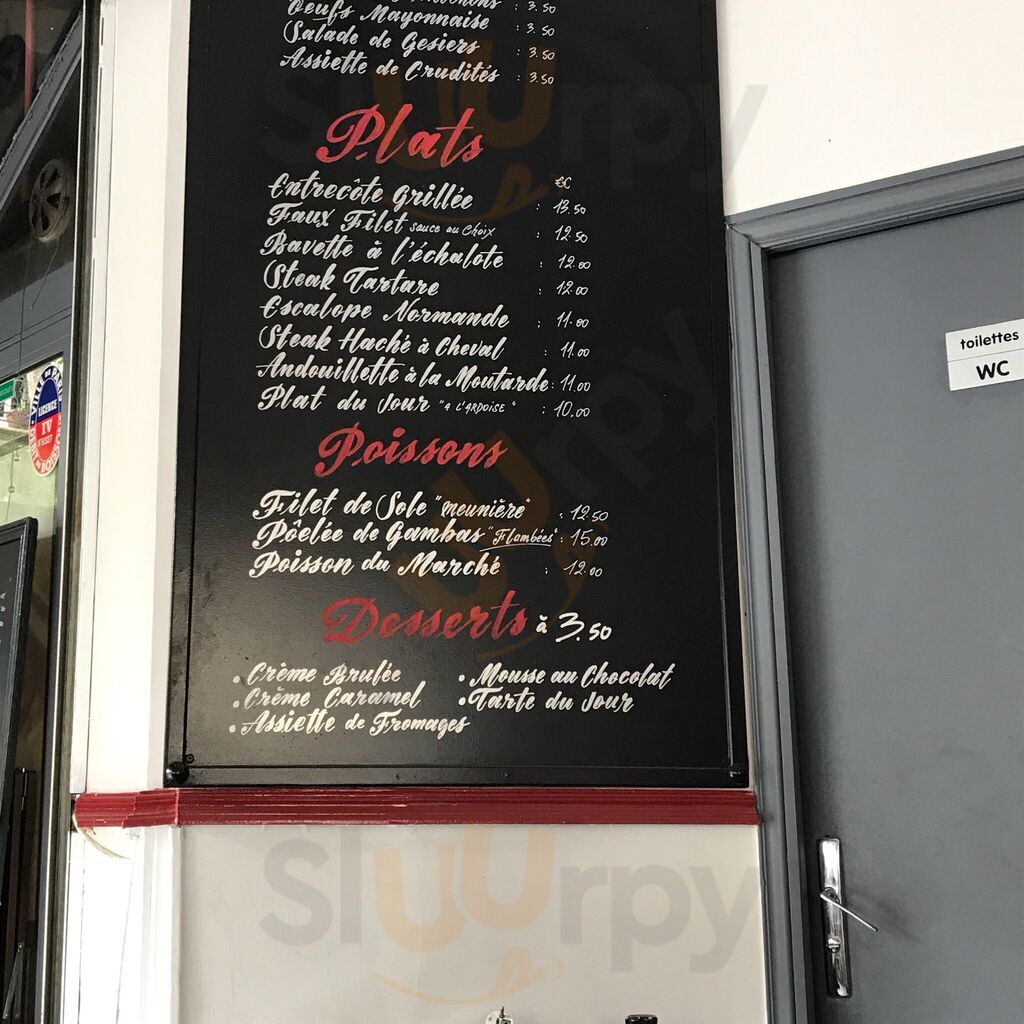 : 3.50
Oeufs Mayonnaise : 3.50
Salade de Gesiers : 3.50
Assiette de Crudités : 3.50
Plats
€C
Entrecôte Grillée : 13.50
Faux Filet sauce au Choix : 12.50
Bavette à l'échalote : 12.00
Steak Tartare : 12.00
Escalope Normande : 11.00
Steak Haché à Cheval : 11.00
Andouillette à la Moutarde : 11.00
Plat du Jour "A L'ARDOISE" : 10.00
Poissons
Filet de Sole "meunière" : 12.50
Pôelée de Gambas "Flambées" : 15.00
Poisson du Marché : 12.00
Desserts à 3.50
• Crème Brulée • Mousse au Chocolat
• Crème Caramel • Tarte du Jour
• Assiette de Fromages
toilettes
WC
VILLE DE PARIS
LICENCE
IV
Sluurpy
Sluurpy